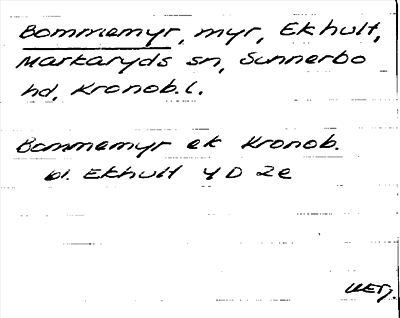 Bommemyr, myr, Ekhult,
Markaryds sn, Sunnerbo
hd, Kronob. l.
Bommemyr ek Kronob.
bl. Ekhult 4D 2e